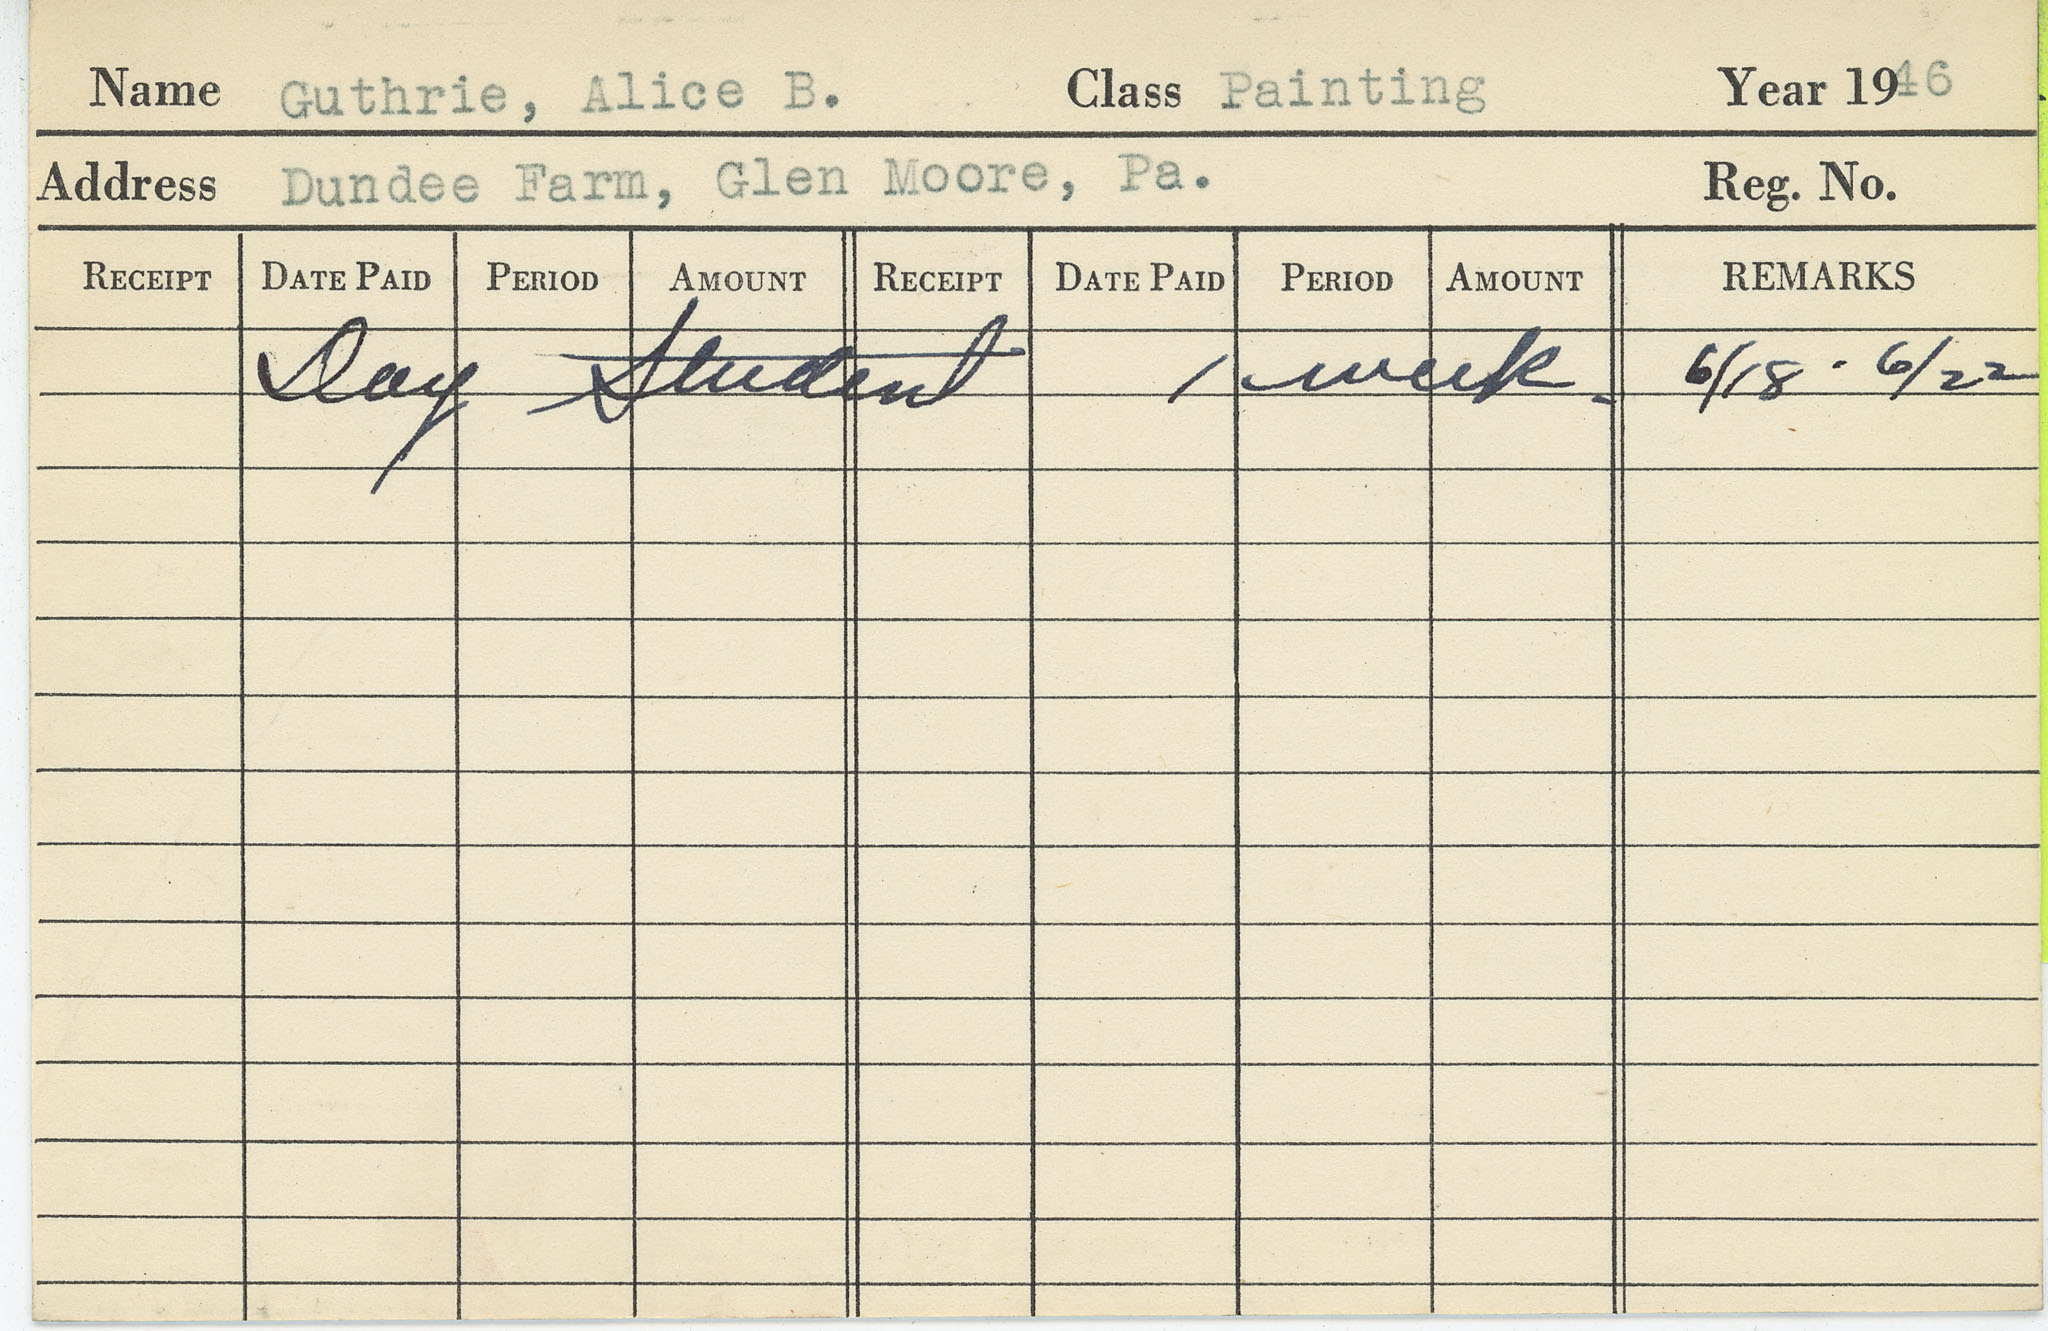 Name Guthrie, Alice B. Class Painting Year 1946
Address Dundee Farm, Glen Moore, Pa. Reg. No.
RECEIPT DATE PAID PERIOD AMOUNT RECEIPT DATE PAID PERIOD AMOUNT REMARKS
Day Student 1 week. 6/18 - 6/22